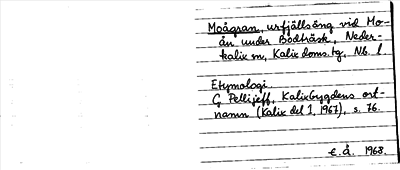 Moågran, urfjällsäng vid Mo-
ån under Bodträsk, Neder-
kalix sn, Kalix doms.tg, Nb. l
Etymologi
G Pellijeff, Kalixbygdens ort-
namn (Kalix del 1, 1967), s. 76.
E.Å. 1968.